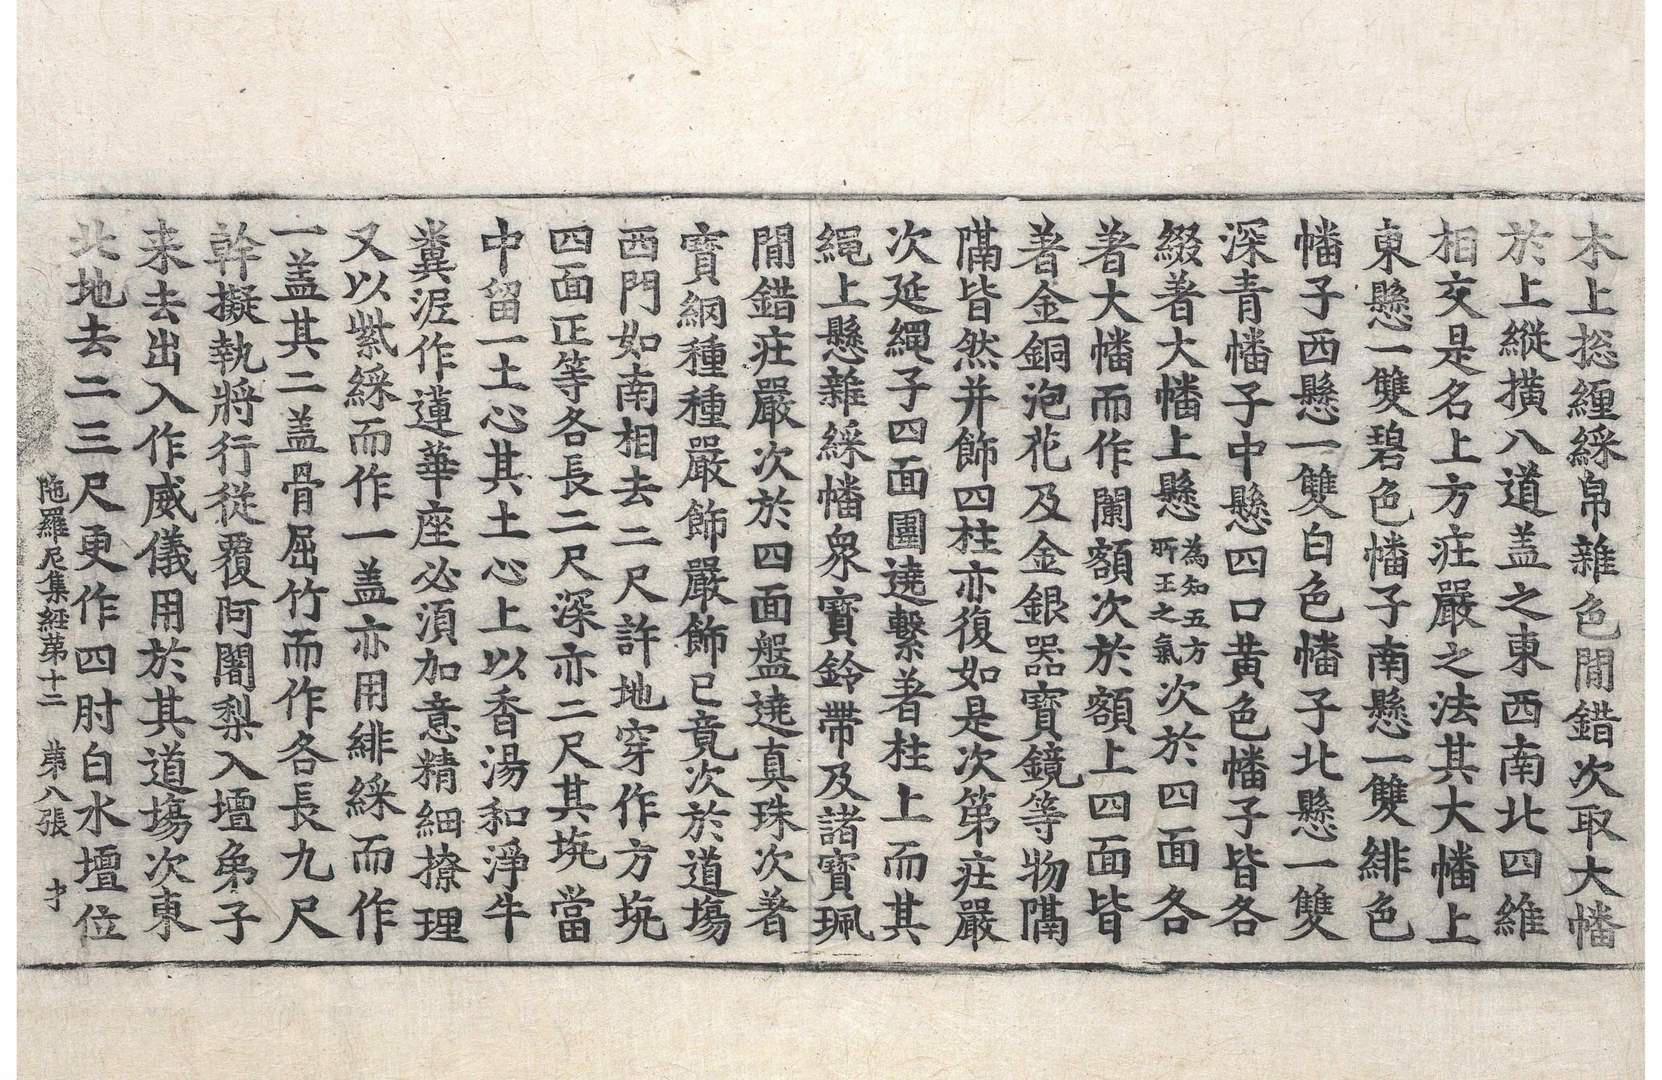 木上揔纏綵帛雜色閒錯次取大幡
於上縱撗八道盖之東西南北四維
相交是名上方疰嚴之法其大幡上
東懸一雙碧色幡子南懸一雙緋色
幡子西懸一雙白色幡子北懸一雙
深青幡子中懸四口黃色幡子皆各
綴著大幡上懸為知五方所王之氣次於四面各
著大幡而作闌額次於額上四面皆
著金銅泡花及金銀器寶鏡等物隔
隔皆然并飾四柱亦復如是次第疰嚴
次延繩子四面圍遶繫著柱上而其
繩上懸雜綵幡衆寶鈴帶及諸寶珮
閒錯疰嚴次於四面盤遶真珠次著
寶網種種嚴飾嚴飾已竟次於道塲
西門如南相去二尺許地穿作方埦
四面正等各長二尺深亦二尺其埦當
中留一土心其土心上以香湯和淨牛
糞泥作蓮華座必須加意精細撩理
又以紫綵而作一盖亦用緋綵而作
一盖其二盖骨屈竹而作各長九尺
幹擬執將行從覆阿闍梨入壇弟子
来去出入作威儀用於其道塲次東
北地去二三尺更作四肘白水壇位
陁羅尼集經第十二　第八張　才